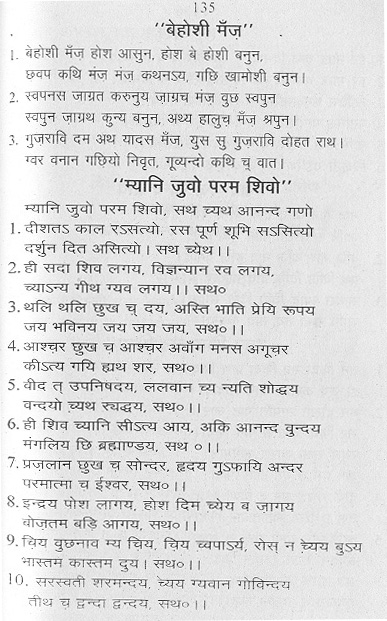 135
"बेहोशी मँज़"
1. बेहोशी मँज़ होश आसुन, होश बे होशी बनुन,
छवप कथि मंज़ मंज़ कथनऽय, गछि खामोशी बनुन।
2. स्वपनस जाग्रत करुनुय ज़ाग्रच मंज़ वुछ स्वपुन
स्वपुन ज़ाग्रथ कुन्य बनुन, अथ्य हालुच़ मँज़ श्रपुन।
3. गुज़रावि दम अथ यादस मँज़, युस सु गुज़रावि दोहत राथ।
ग्वर वनान गछियो निवृत, गूव्यन्दो कथि च़ वात।
"म्यानि जुवो परम शिवो"
म्यानि जुवो परम शिवो, सथ च़्यथ आनन्द गणो
1. दीशतऽ काल रऽसत्यो, रस पूर्ण शूभि सऽसित्यो
दर्शुन दित असित्यो। सथ च्येथ।।
2. ही सदा शिव लगय, विज्ञन्यान रव लगय,
च्याऽन्य गीथ ग्यव लगय।। सथ०
3. थलि थलि छुख च़ दय, अस्ति भाति प्रेयि रूपय
जय भविनय जय जय जय, सथ०।।
4. आश्च़र छुख च़ आश्च़र अवाँग मनस अगूच़र
कीऽत्य गयि ह्यथ शर, सथ०।।
5. वीद त् उपनिषदय, ललवान च्य न्यति शोद्धय
वन्दयो च्यथ स्यद्धय, सथ०।।
6. ही शिव च्यानि सीऽत्य आय, अकि आनन्द वुन्दय
मंगलिय छि ब्रह्माण्डय, सथ ०।।
7. प्रज़लान छुख च़ सोन्दर, हृदय गुऽफायि अन्दर
परमात्मा च़ ईश्वर, सथ०।।
8. इन्द्रय पोश लागय, होश दिम च्येय ब ज़ागय
बोज़तम बड़ि आगय, सथ०।।
9. च़िय वुछनाव म्य च़िय, च़िय च्वपाऽर्य, रोस् न च़्येय बुऽय
भास्तम कास्तम दुय। सथ०।।
10. सरस्वती शरमन्दय, च्येय ग्यवान गोविन्दय
तीथ च़ द्वन्दा द्वन्दय, सथ०।।